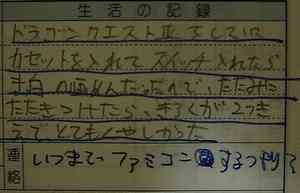 生活の記録
ドラゴンクエストⅣをしていて
カセットを入れてスイッチ入れたら
まっ白の画めんだったので、たたみに
たたきつけたら、きろくが2つき
えて とてもくやしかった
連絡
いつまで ファミコン するつもり?